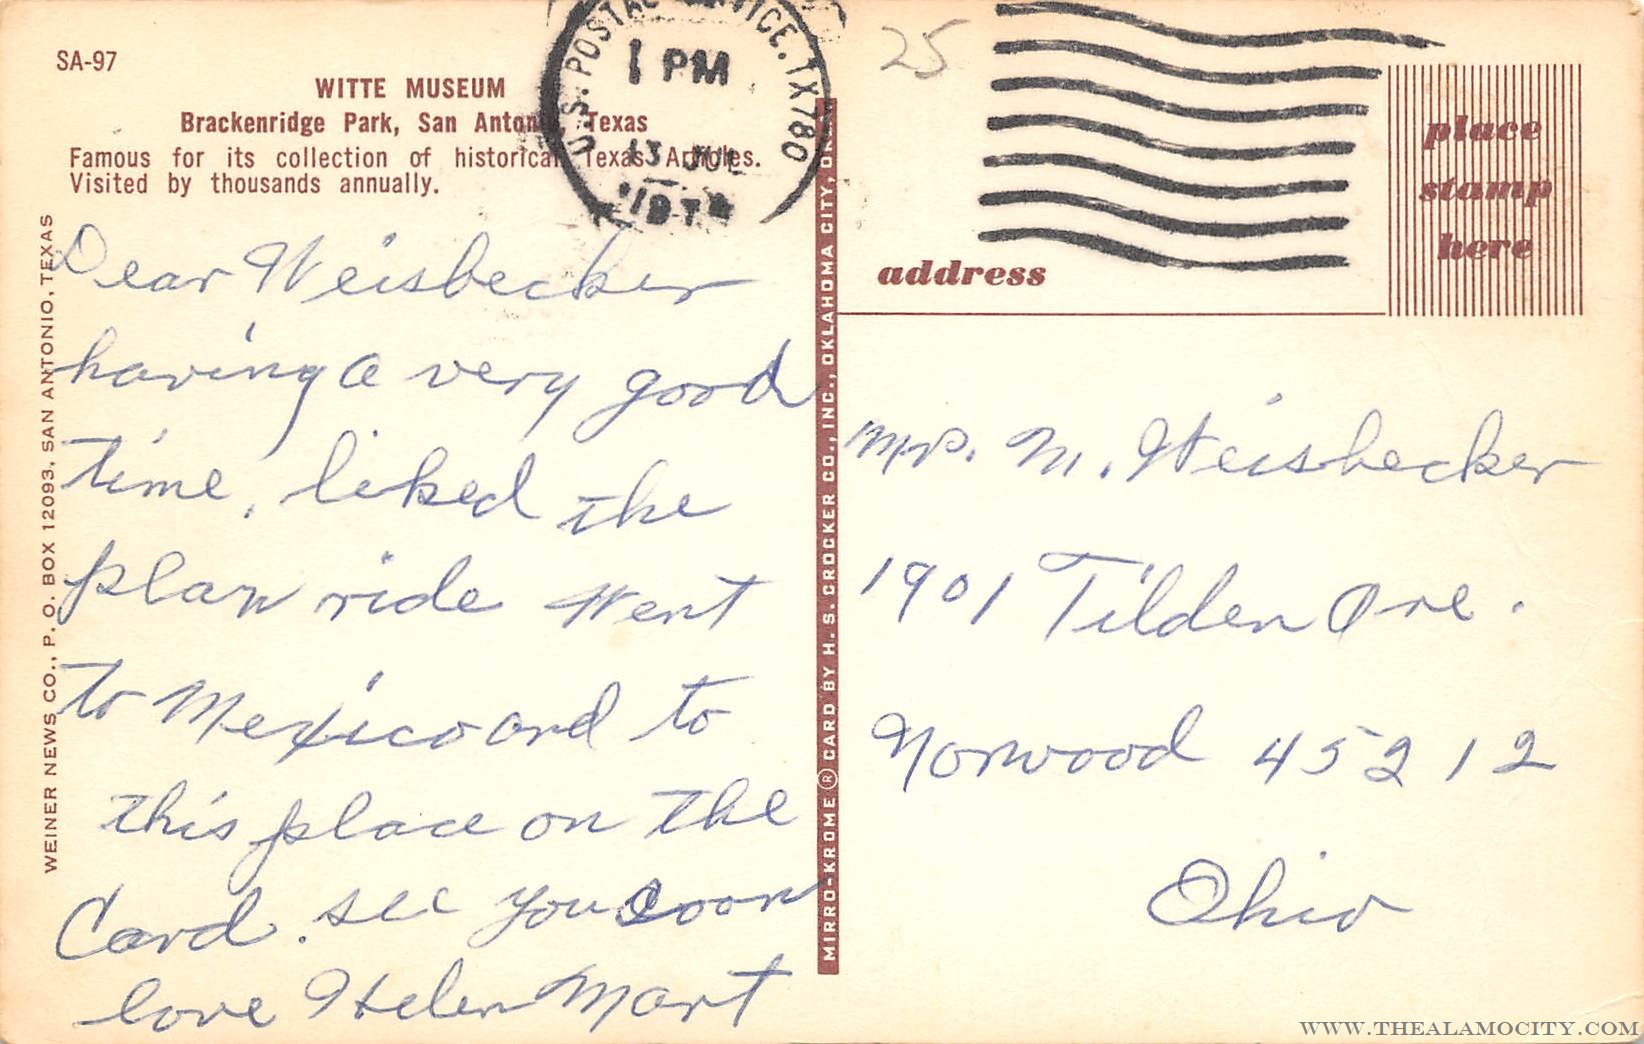 SA-97
WITTE MUSEUM
Brackenridge Park, San Antonio, Texas
Famous for its collection of historical Texas Articles.
Visited by thousands annually.
WEINER NEWS CO., P. O. BOX 12093, SAN ANTONIO, TEXAS
Dear Weisbecker
having a very good
time, liked the
plan ride Went
to Mexico and to
this place on the
Card. see you soon
love Helen Mart
U.S. POSTAL SERVICE, TX 780
1 PM
13 JUL
197
MIRRO-KROME ® CARD BY H. S. CROCKER CO., INC., OKLAHOMA CITY, OKLA
25
place
stamp
here
address
Mrs. M. Weisbecker
1901 Tilden Ave.
Norwood 45212
Ohio
WWW.THEALAMOCITY.COM